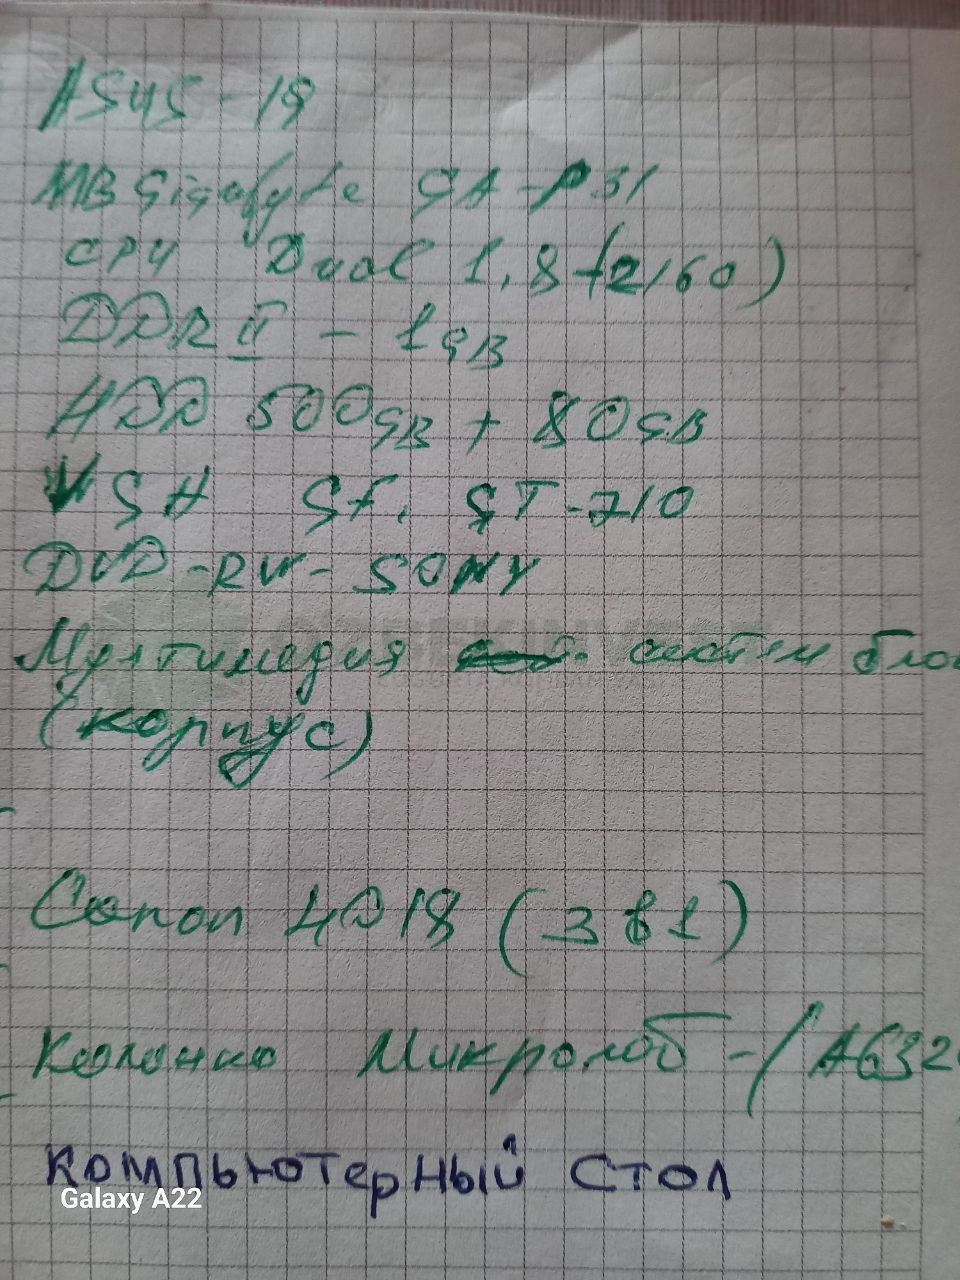 ASUS - 19
MB Gigabyte GA-P31
CPU Dual 1,8 (2160)
DDR II - 1GB
HDD 500GB + 80GB
VGA GF. GT-710
DVD-RW-SONY
Мултимедия систем бло
(корпус)
4018 (3 в 1)
Колонко Микролоб - (A632
компьютерный стол
Galaxy A22